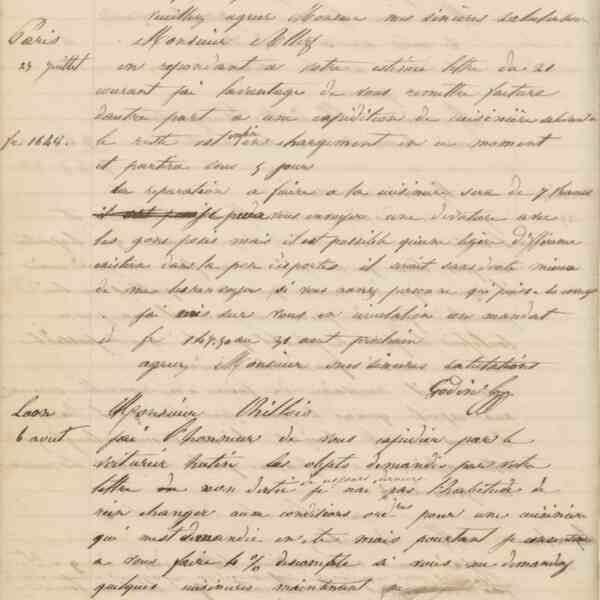 veuillez agréer Monsieur mes sincères salutations
Paris Monsieur
23 juillet en repondant a votre estimée lettre du 21
courant j'ai l'avantage de vous remettre facture
d'autre part a une expédition de cuisinière
fr 1644. le reste est enfin en chargement en ce moment
et partira sous 5 jours
la reparation a faire a la cuisinière sera de 7 francs
vous envoyer une devature avec
les gons posés mais il est possible qu'une légère différence
existera dans la pose des portes il serait sans doute mieux
de me les renvoyer si vous n'avez personne qui puisse les
j'ai mis sur vous en circulation un mandat
de fr 147.50 au 31 aout prochain
agréez Monsieur mes sincères salutations
Godin
Laon Monsieur
6 aout j'ai l'honneur de vous expédier par le
voiturier hutin les objets demandés par votre
lettre non datée je n'ai pas l'habitude de
rien changer aux conditions pour une cuisinière
qui m'est demandée en été mais pourtant je
a vous faire 4 % d'escompte si vous me demandez
quelques cuisinières maintenant